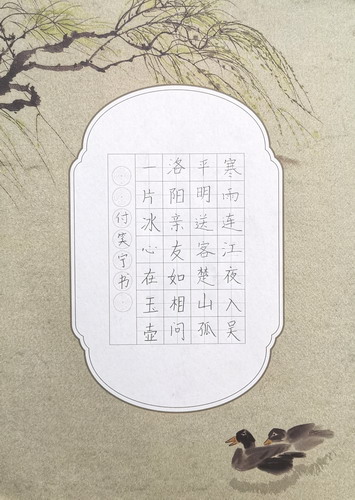 寒雨连江夜入吴
平明送客楚山孤
洛阳亲友如相问
一片冰心在玉壶
付笑宁书